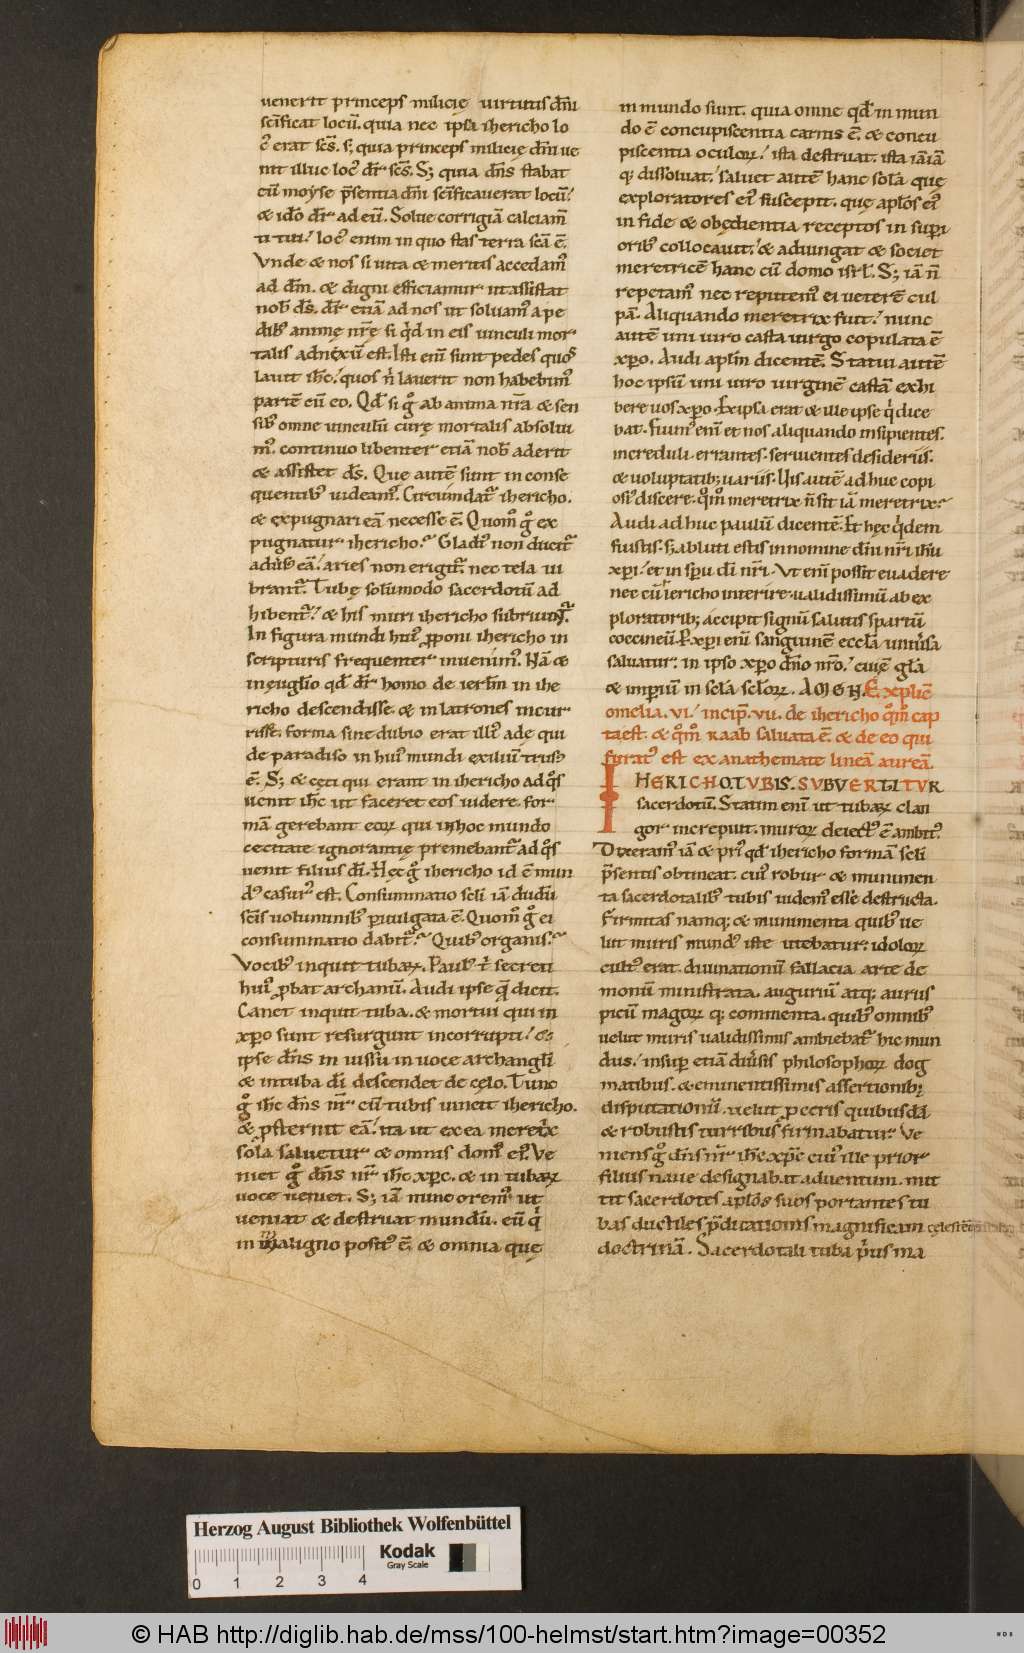 uenerit princeps milicię uirtutis dn̄i
sc̄ificat locū. quia nec ipsa ihericho lo
c᷒ erat sc̄s. s; quia princeps milicię dn̄i ue
nit illuc loc᷒ dr̄ sc̄s. S; quia dn̄s stabat
cū moyse p̄sentia dn̄i sc̄ificauerat locū.
& id̄o dr̄ ad eū. Solue corrigiā calciam̄
ti tui. loc᷒ enim in quo stas terra sc̄a ē.
Vnde & nos si uita & meritis accedam᷒
ad dn̄m. & digni efficiamur ut assistat
nob̄ ds̄. dr̄ etiā ad nos ut soluam᷒ a pe
dib᷒ animę nr̄ę si qd̄ in eis uinculi mor
talis adnexū est. Isti enī sunt pedes quos
lauit ih̄c. quos n̄ lauerit non habebim᷒
partē cū eo. Qd̄ si g̊ ab anima nr̄a & sen
sib᷒ omne uinculū curę mortalis absolui
m᷒. continuo libenter etiā nob̄ aderit
& assistet ds̄. Que autē sunt in conse
quentib᷒ uideam᷒. Circūdat᷑ ihericho.
& expugnari eā necesse ē. Quom̊ g̊ ex
pugnatur ihericho. Gladi᷒ non ducit᷑
aduers᷒ eā. aries non erigit᷑. nec tela ui
brant᷑. Tubę solūmodo sacerdotū ad
hibent᷑. & his muri ihericho subruunt᷑.
In figura mundi hui᷒ p̱poni ihericho in
scripturis frequenter inuenim᷒. Nā &
in euglīo qd̄ dr̄ homo de ierlm̄ in ihe
richo descendisse. & in latrones incur
risse. forma sine dubio erat illi᷒ adę qui
de paradiso in hui᷒ mundi exiliū trus᷒
ē. S; & cęci qui erant in ihericho ad q̊s
uenit ih̄c ut faceret eos uidere. for
mā gerebant eoꝝ qui in hoc mundo
cecitate ignorantię premebant᷑ ad q̊s
uenit filius dī. Hęc g̊ ihericho id ē mun
d᷒ casur᷒ est. Consummatio scl̄i iā dudū
sc̄is uoluminib᷒ ꝑuulgata ē. Quom̊ g̊ ei
consummatio dabit᷑. Quib᷒ organis.
Vocib᷒ inquit tubaꝝ. Paul᷒ t̄ secreti
hui᷒ p̱bat archanū. Audi ipse q̄ dicit.
Canet inquit tuba. & mortui qui in
xp̄o sunt resurgunt incorrupti. &
ipse dn̄s in iussu in uoce archangl̄i
& in tuba dī descendet de cęlo. Tunc
g̊ ih̄c dn̄s nr̄ cū tubis uincit ihericho.
& p̱sternit eā. ita ut ex ea meret͛x
sola saluetur & omnis dom᷒ ei᷒. Ve
niet g̊ dn̄s nr̄ ih̄c xp̄c. & in tubaꝝ
uoce ueniet. S; iā nunc orem᷒ ut
ueniat & destruat mundū. eū q͛
in maligno posit᷒ ē. & omnia quę
in mundo sunt. quia omne qd̄ in mun
do ē concupiscentia carnis ē. & concu
piscentia oculoꝝ. ista destruat. ista iā iā
q; dissoluat. saluet autē hanc solā quę
exploratores ei᷒ suscepit. quę apl̄os ei᷒
in fide & obędientia receptos in supi
orib᷒ collocauit. & adiungat & societ
meretricē hanc cū domo isrl̄. S; iā n̄
repetam᷒ nec reputem᷒ ei ueterē cul
pā. Aliquando meretrix fuit. nunc
autē uni uiro casta uirgo copulata ē
xp̄o. Audi aplm̄ dicentē. Statui autē
hoc ipsū uni uiro uirginē castā exhi
bere uos xp̄o. Ex ipsa erat & ille ipse q͛ dice
bat. Fuim᷒ enī et nos aliquando insipientes.
increduli. errantes. seruientes desideriis.
& uoluptatib; uariis. Uis autē adhuc copi
osi᷒ discere. qm̊ meretrix n̄ sit iā meretrix.
Audi adhuc paulū dicentē. Et hęc q͛dem
fuistis. s; abluti estis in nomine dn̄i nr̄i ih̄u
xp̄i. et in sp̄u dī nr̄i. Vt enī possit euadere
nec cū iericho interire. ualidissimū ab ex
ploratorib; accipit signū salutis spartū
coccineū. P xp̄i enī sanguinē eccl̄a uniūsa
saluatur. in ipso xp̄o dn̄o nr̄o. cui᷒ ē gl̄a
& imperiū in scl̄a scl̄oꝝ. AMEN. Explić
omelia. vi. incip̄. vii. de ihericho qm̊ cap
ta est. & qm̊ raab saluata ē. & de eo qui
furat᷒ est ex anathemate lineā aureā.
IHERICHO. TVBIS. SVBVERTITVR
sacerdotū. Statim enī ut tubaꝝ clan
gor increpuit. muroꝝ deiect᷒ ē ambit᷒.
Dixeram᷒ iā & pri᷒ qd̄ ihericho formā scl̄i
p̄sentis obtineat. cui᷒ robur & munimen
ta sacerdotalib᷒ tubis uidem᷒ esse destructa.
Firmitas namq; & munimenta quib᷒ ue
lut muris mund᷒ iste utebatur. idoloꝝ
cult᷒ erat. diuinationū fallacia arte de
monū ministrata. auguriū atq; aurus
picū magoꝝ q; commenta. quib᷒ omnib᷒
uelut muris ualidissimis ambiebat᷑ hic mun
dus. insuꝑ etiā diūsis philosophoꝝ dog
matibus. & eminentissimis assertionib;
disputationū. uelut p̱ceris quibusdā
& robustis turribus firmabatur. Ve
niens g̊ dn̄s nr̄ ih̄c xp̄c cui᷒ ille prior
filius naue designabat aduentum. mit
tit sacerdotes apl̄os suos portantes tu
bas ductiles p̄dicationis magnificam cęlestēq;
doctrinā. Sacerdotali tuba p͛us ma
Herzog August Bibliothek Wolfenbüttel
Kodak
Gray Scale
0 1 2 3 4
© HAB http://diglib.hab.de/mss/100-helmst/start.htm?image=00352